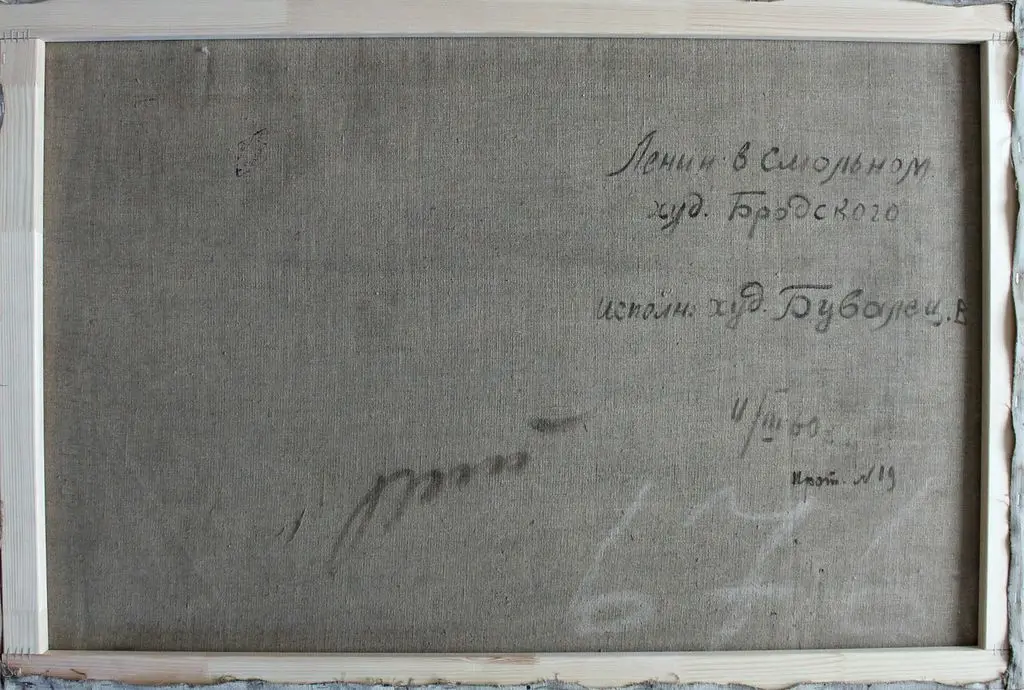 Ленин в Смольном
худ. Бродского
исполн. худ. Бувалец. В
11/III 60г.
прот. N 19